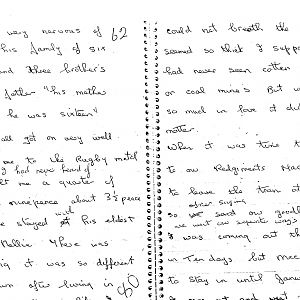 very nervous of 62
his family of six
and three brother's
father "his mother
he was sixteen"
all got on very well
me to the Rugby match
I had never heard of
me a quarter of
ninepence about 3½ peace
we stayed with his eldest
Nellie. There was
it was so different
after living in
could not breath the
seemed so thick I suppose
had never seen cotton
or coal mine's But w
so much in love it did
matter.
When it was time t
to our Redgiments Mac
to leave the train at
after saying
so said our goodb
we went our seperate ways
I was coming out th
in Ten days but mec
to stay in until Janua
and went